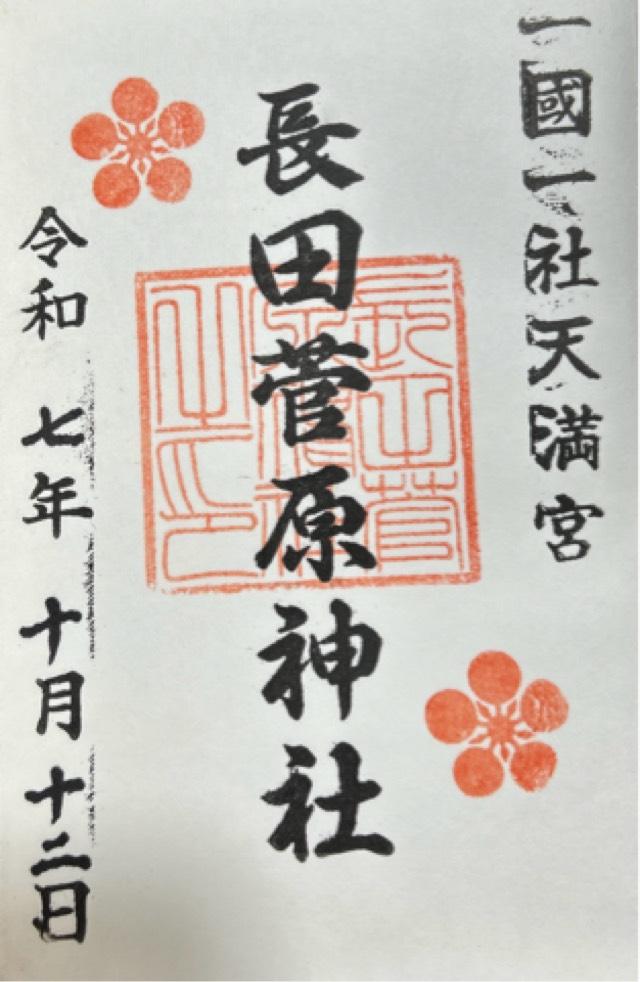 一國一社天満宮
長田菅原神社
令和七年十月十二日